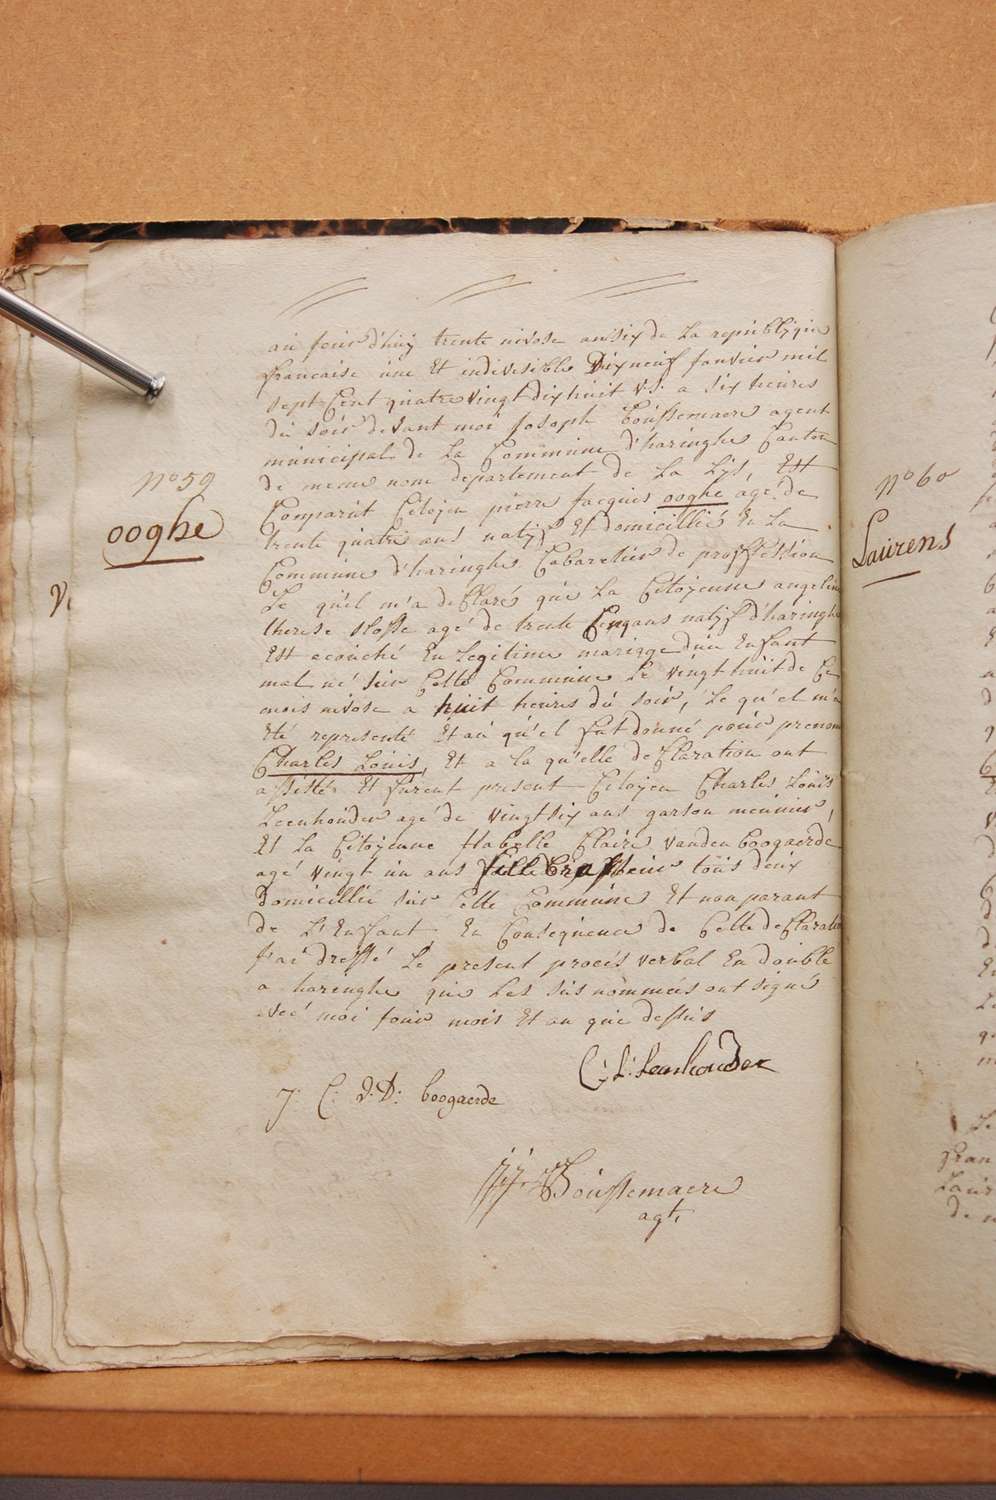 au jour d'huÿ trente nivose an six de La republique
francaise une Et indivisible Dixneuf janvier mil
sept Cent quatre vingt dix huit v.s. a six heures
du soir devant moi joseph Boussemaere agent
municipal de La Commune d'haringhe Canton
de meme nom departement de La Lÿs, Est
Comparut Citoÿen pierre jacques ooghe agé de
trente quatre ans natif Et domicillié En La
Commune d'haringhe Cabaretier de proffession
Le quel m'a declaré que La Citoÿenne angeline
therese agé de trente Cinq ans natif d'haringhe
Est acouché En Legitime mariage d'un Enfant
mal né sur Cette Commune Le vingt huit de Ce
mois nivose a huit heures du soir, Le qu'el m'a
Eté representé Et au qu'el fut donné pour prenom
Charles Louis, Et a la qu'elle declaration ont
assisté Et furent present Citoÿen Charles Louis
Leenhouder agé de vingt six ans garson meunier,
Et La Citoÿenne Isabelle Claire vanden boogaerde
agé vingt un ans fille brasseur tous deux
Domicillié sur Cette Commune Et non parant
de L'Enfant. En Consequence de Cette declaration
j'ai dressé Le present procès verbal En double
a haringhe que Les sus nommeis ont signé
avec moi jour mois Et an que dessus
C: L: Leenhouder
J: C: V: D: boogaerde
J: J: Boussemaere
agt,
N° 59
ooghe
V,
N° 60
Laurens